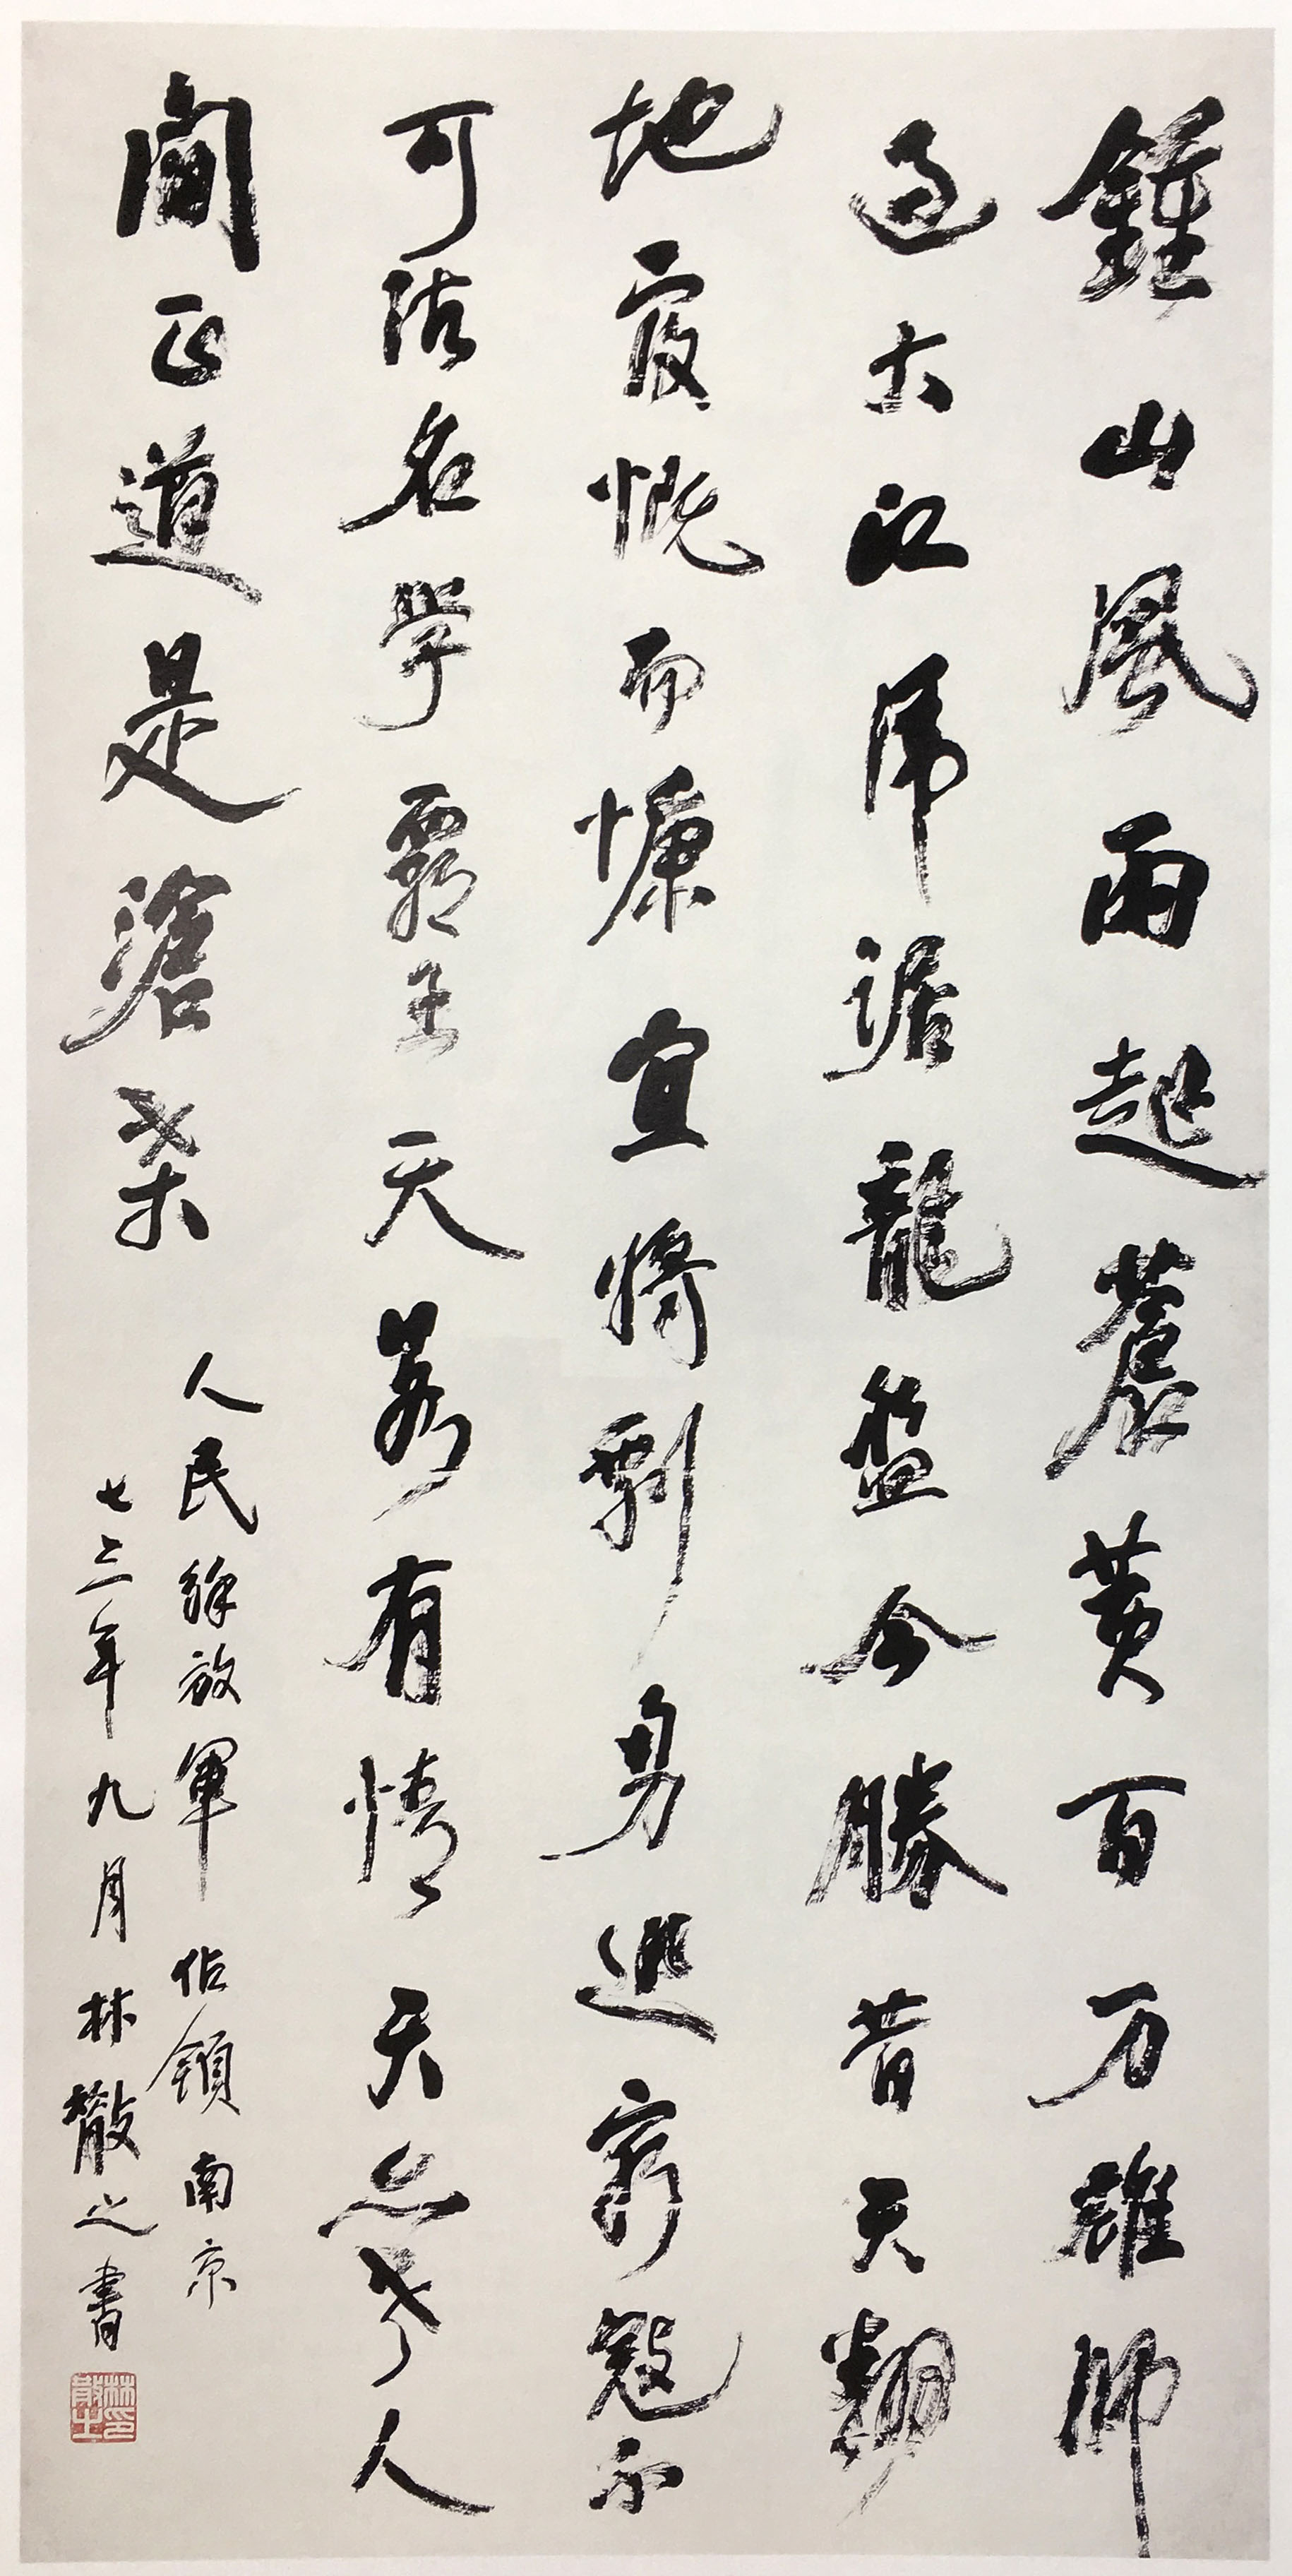 鍾山風雨起蒼黃百万雄師
過大江虎踞龍盤今勝昔天翻
地覆慨而慷宜將剩勇追窮寇不
可沽名學霸王天若有情天亦老人
間正道是滄桑
人民解放軍佔領南京
七三年九月林散之書
林散之印